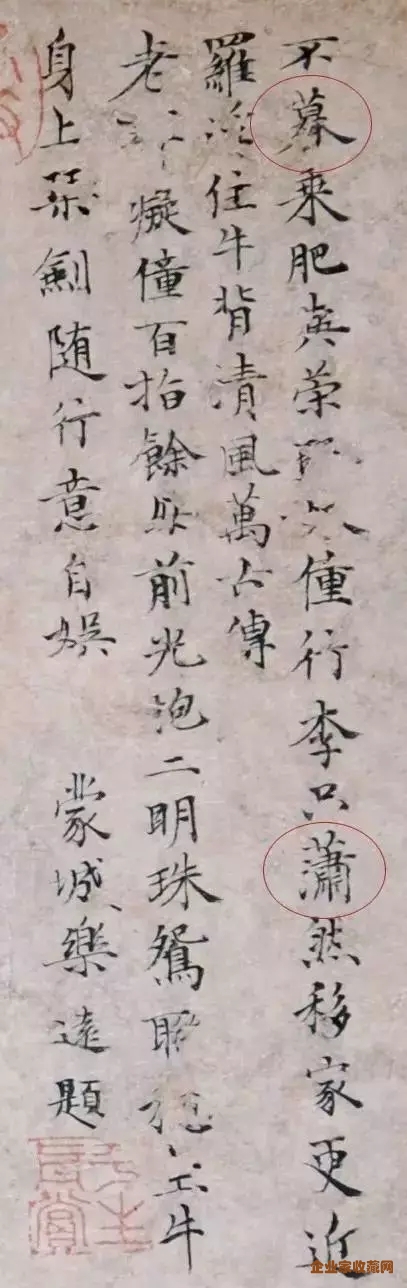 不慕乘肥與荣僮行李只蕭然移家更近
羅浮住牛背清風萬古傳
老癡僮百指餘前光泡二明珠牛
身上琹劍随行意自娛 蒙城樂遠題
企业家收藏网